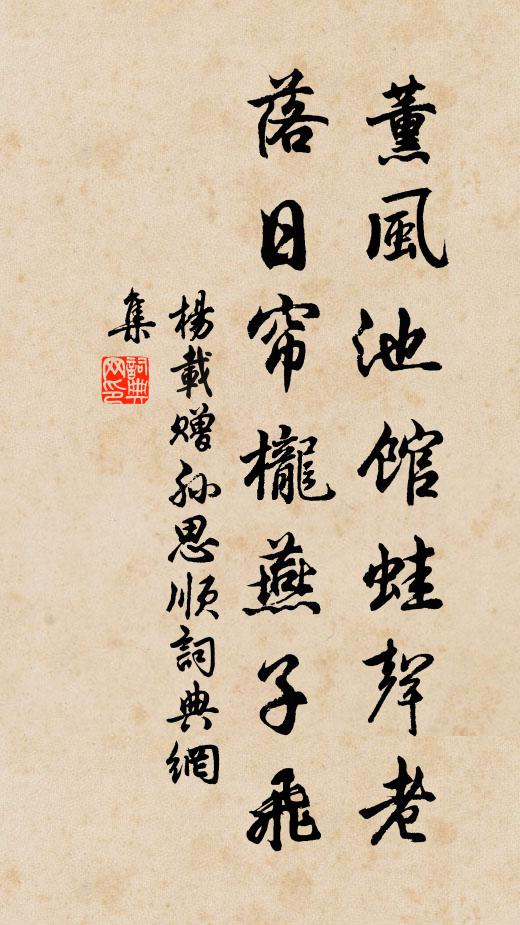 薰風池館蛙聲老
落日帘櫳燕子飛
楊載贈孙思順詞典網
集
詞典
网印